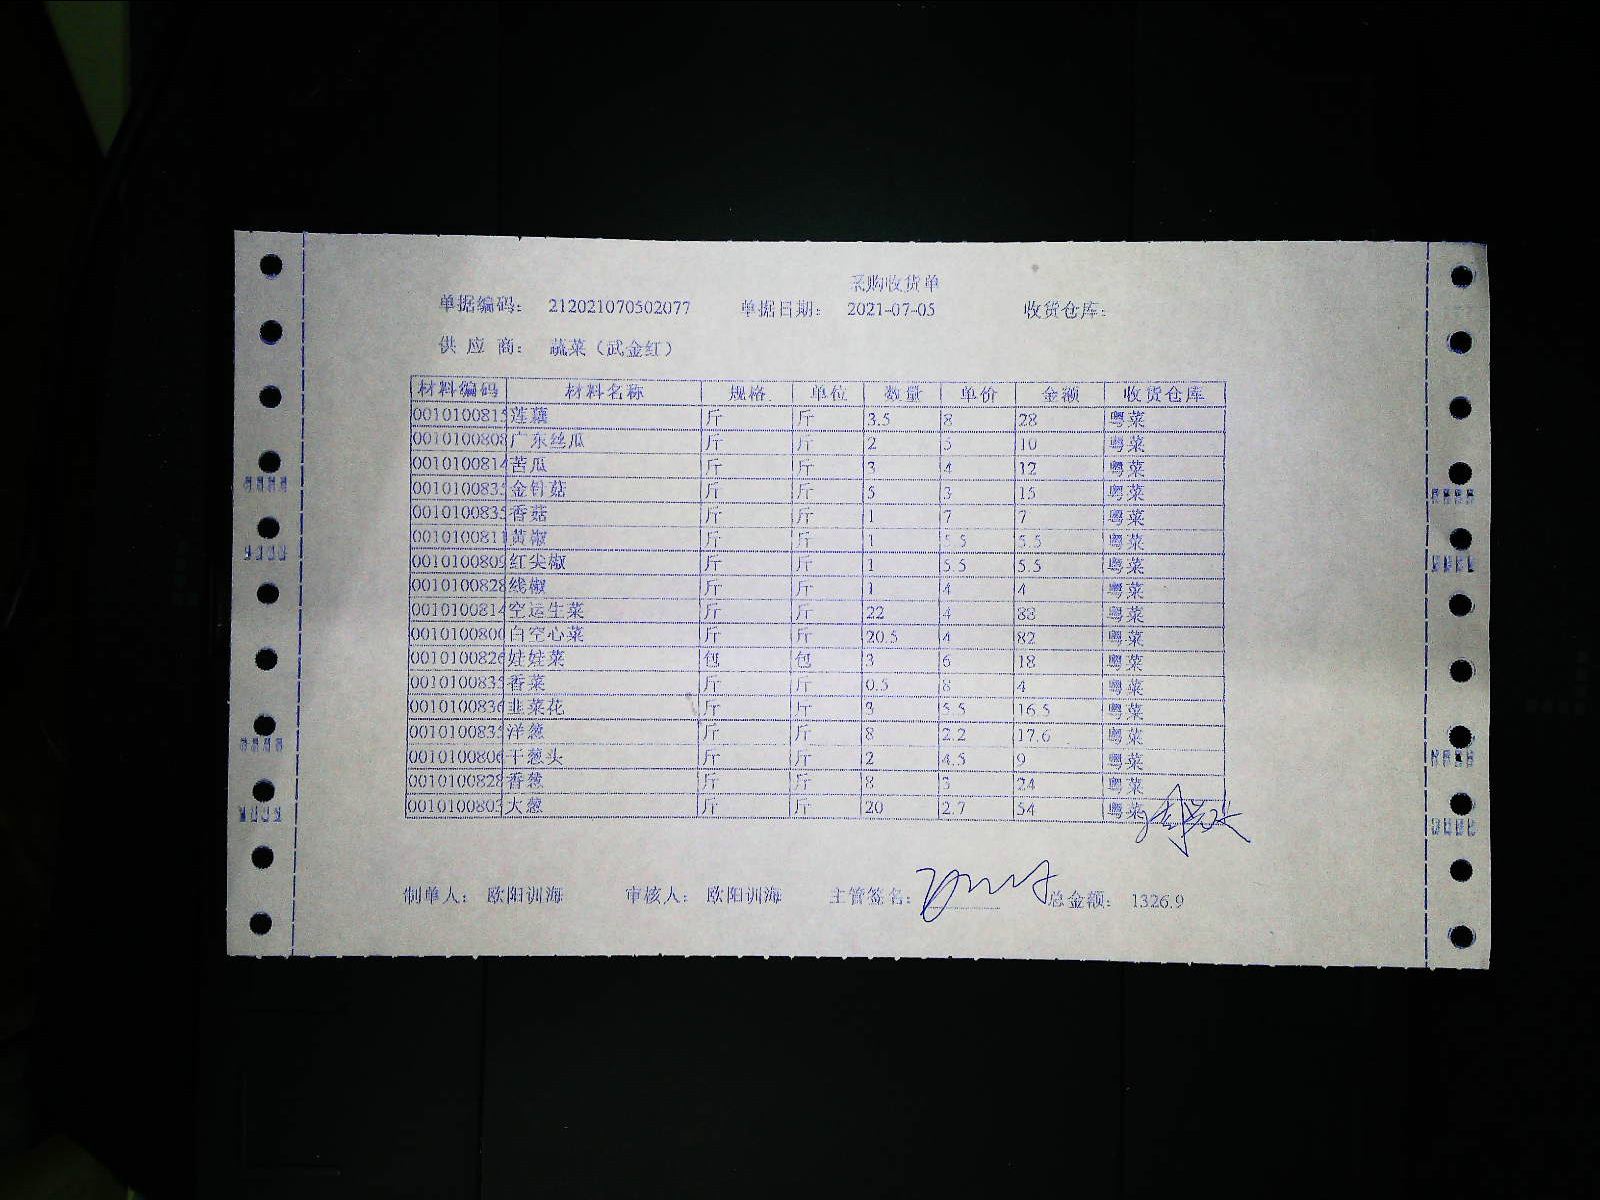 采购收货单
单据编码： 212021070502077 单据日期： 2021-07-05 收货仓库：
供 应 商： 蔬菜（武金红）
材料编码 材料名称 规格 单位 数量 单价 金额 收货仓库
0010100815 莲藕 斤 斤 3.5 8 28 粤菜
0010100808 广东丝瓜 斤 斤 2 5 10 粤菜
0010100814 苦瓜 斤 斤 3 4 12 粤菜
001010083 金针菇 斤 斤 5 3 15 粤菜
0010100835 香菇 斤 斤 1 7 7 粤菜
0010100811 黄椒 斤 斤 1 5.5 5.5 粤菜
0010100809 红尖椒 斤 斤 1 5.5 5.5 粤菜
0010100828 线椒 斤 斤 1 4 4 粤菜
0010100814 空运生菜 斤 斤 22 4 88 粤菜
0010100800 白空心菜 斤 斤 20.5 4 82 粤菜
0010100826 娃娃菜 包 包 3 6 18 粤菜
0010100835 香菜 斤 斤 0.5 8 4 粤菜
0010100836 韭菜花 斤 斤 3 5.5 16.5 粤菜
0010100835 洋葱 斤 斤 8 2.2 17.6 粤菜
0010100806 干葱头 斤 斤 2 4.5 9 粤菜
0010100828 香葱 斤 斤 8 3 24 粤菜
0010100803 大葱 斤 斤 20 2.7 54 粤菜
制单人： 欧阳训海 审核人： 欧阳训海 主管签名： 总金额： 1326.9